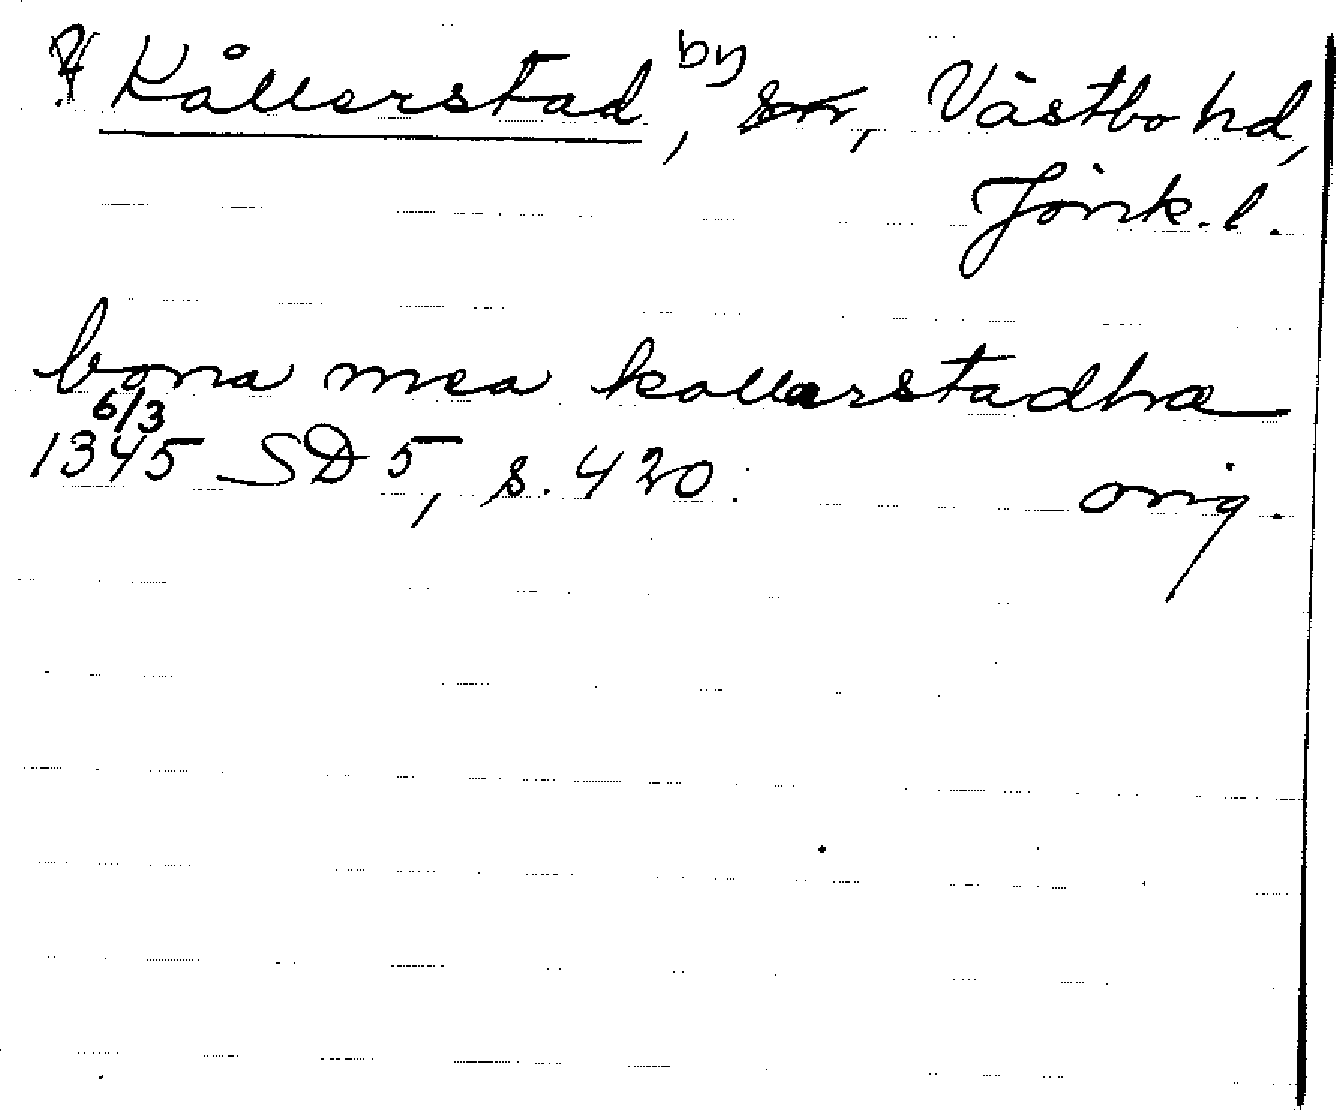 ? Kållerstad, by, sn, Västbo hd,
Jönk. l.
bona mea kollarstadhæ
6/3
1345 SD 5, s. 420. orig.